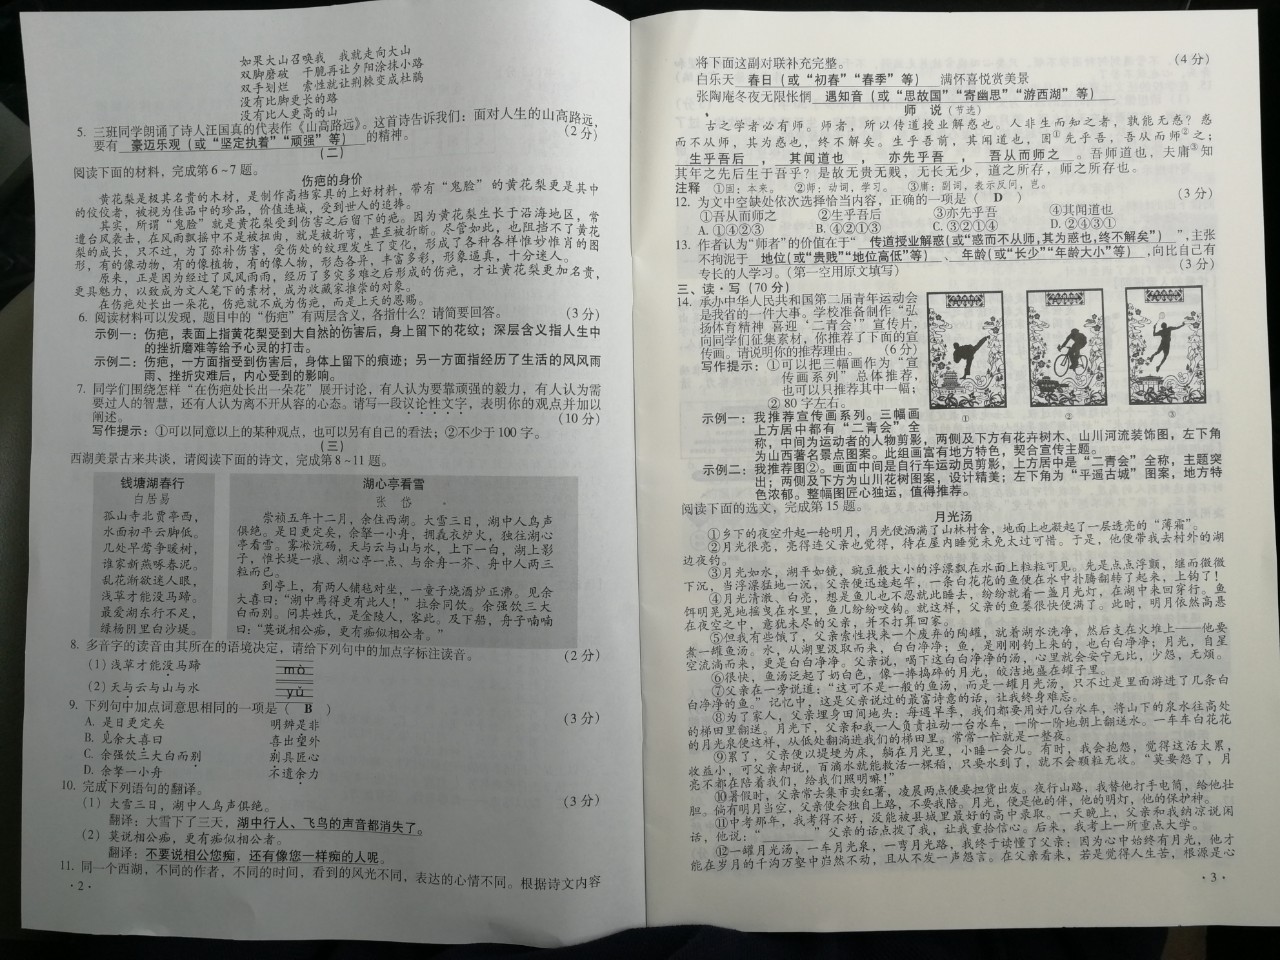 如果大山召唤我　我就走向大山
双脚磨破　干脆再让夕阳涂抹小路
双手划烂　索性就让荆棘变成杜鹃
没有比脚更长的路
没有比人更高的山
5. 三班同学朗诵了诗人汪国真的代表作《山高路远》。这首诗告诉我们：面对人生的山高路远，
要有 豪迈乐观（或“坚定执着”“顽强”等） 的精神。 (2 分)
(二)
阅读下面的材料，完成第 6～7 题。
伤疤的身价
黄花梨是极其名贵的木材，是制作高档家具的上好材料，带有“鬼脸”的黄花梨更是其中
的佼佼者，被视为佳品中的珍品，价值连城，受到世人的追捧。
其实，所谓“鬼脸”就是黄花梨受到伤害之后留下的疤。因为黄花梨生长于沿海地区，常
遭台风袭击，在风雨飘摇中不是被扭曲，就是被折弯，甚至被折断。尽管如此，也阻挡不了黄花
梨的成长，只不过，为了弥补伤害，受伤处的纹理发生了变化，形成了各种各样惟妙惟肖的图
形，有的像动物，有的像植物，有的像人物，形态各异，丰富多彩，形象逼真，十分迷人。
原来，正是因为经过了风风雨雨，经历了多灾多难之后形成的伤疤，才让黄花梨更加名贵，
更具魅力，以致成为文人笔下的素材，成为收藏家推崇的对象。
在伤疤处长出一朵花，伤疤就不成为伤疤，而是上天的恩赐。
6. 阅读材料可以发现，题目中的“伤疤”有两层含义，各指什么？请简要回答。 (3 分)
示例一：伤疤，表面上指黄花梨受到大自然的伤害后，身上留下的花纹；深层含义指人生中
的挫折磨难等给予心灵的打击。
示例二：伤疤，一方面指受到伤害后，身体上留下的痕迹；另一方面指经历了生活的风风雨
雨、挫折灾难后，内心受到的影响。
7. 同学们围绕怎样“在伤疤处长出一朵花”展开讨论，有人认为要靠顽强的毅力，有人认为需
要过人的智慧，还有人认为离不开从容的心态。请写一段议论性文字，表明你的观点并加以
阐述。 (10 分)
写作提示：①可以同意以上的某种观点，也可以另有自己的看法；②不少于 100 字。
(三)
西湖美景古来共谈，请阅读下面的诗文，完成第 8～11 题。
钱塘湖春行
白居易
孤山寺北贾亭西，
水面初平云脚低。
几处早莺争暖树，
谁家新燕啄春泥。
乱花渐欲迷人眼，
浅草才能没马蹄。
最爱湖东行不足，
绿杨阴里白沙堤。
湖心亭看雪
张　岱
崇祯五年十二月，余住西湖。大雪三日，湖中人鸟声
俱绝。是日更定矣，余拏一小舟，拥毳衣炉火，独往湖心
亭看雪。雾凇沆砀，天与云与山与水，上下一白，湖上影
子，惟长堤一痕、湖心亭一点、与余舟一芥、舟中人两三
粒而已。
到亭上，有两人铺毡对坐，一童子烧酒炉正沸。见余
大喜曰：“湖中焉得更有此人！”拉余同饮。余强饮三大
白而别。问其姓氏，是金陵人，客此。及下船，舟子喃喃
曰：“莫说相公痴，更有痴似相公者。”
8. 多音字的读音由其所在的语境决定，请给下列句中的加点字标注读音。 (2 分)
(1) 浅草才能没马蹄　mò
(2) 天与云与山与水　yǔ
9. 下列句中加点词意思相同的一项是（ B ） (3 分)
A. 是日更定矣　明辨是非
B. 见余大喜曰　喜出望外
C. 余强饮三大白而别　别具匠心
D. 余拏一小舟　不遗余力
10. 完成下列语句的翻译。 (3 分)
(1) 大雪三日，湖中人鸟声俱绝。
翻译：大雪下了三天，湖中行人、飞鸟的声音都消失了。
(2) 莫说相公痴，更有痴似相公者。
翻译：不要说相公您痴，还有像您一样痴的人呢。
11. 同一个西湖，不同的作者，不同的时间，看到的风光不同，表达的心情不同。根据诗文内容
· 2 ·
将下面这副对联补充完整。 (4 分)
白乐天 春日（或“初春”“春季”等） 满怀喜悦赏美景
张陶庵冬夜无限怅惘 遇知音（或“思故国”“寄幽思”“游西湖”等）
师　说（节选）
古之学者必有师。师者，所以传道授业解惑也。人非生而知之者，孰能无惑？惑
而不从师，其为惑也，终不解矣。生乎吾前，其闻道也，固①先乎吾，吾从而师②之；
生乎吾后 ， 其闻道也 ， 亦先乎吾 ， 吾从而师之 。吾师道也，夫庸③知
其年之先后生于吾乎？是故无贵无贱，无长无少，道之所存，师之所存也。
注释　①固：本来。　②师：动词，学习。　③庸：副词，表示反问，岂。
12. 为文中空缺处依次选择恰当内容，正确的一项是（ D ） (3 分)
①吾从而师之　②生乎吾后　③亦先乎吾　④其闻道也
A. ①④②③　B. ④②①③　C. ③②①④　D. ②④③①
13. 作者认为“师者”的价值在于“ 传道授业解惑(或“惑而不从师,其为惑也,终不解矣”) ”，主张
不拘泥于 地位(或“贵贱”“地位高低”等) 、 年龄(或“长少”“年龄大小”等) ,向比自己有
专长的人学习。(第一空用原文填写) (3 分)
三、读·写 (70 分)
14. 承办中华人民共和国第二届青年运动会
是我省的一件大事。学校准备制作“弘
扬体育精神 喜迎‘二青会’”宣传片，
向同学们征集素材，你推荐了下面的宣
传画。请说明你的推荐理由。 (6 分)
写作提示：①可以把三幅画作为“宣
传画系列”总体推荐，
也可以只推荐其中一幅；
② 80 字左右。
①　②　③
示例一：我推荐宣传画系列。三幅画
上方居中都有“二青会”全
称，中间为运动者的人物剪影，两侧及下方有花卉树木、山川河流装饰图，左下角
为山西著名景点图案。此组画富有地方特色，契合宣传主题。
示例二：我推荐图②。画面中间是自行车运动员剪影，上方居中是“二青会”全称，主题突
出；两侧及下方为山川花树图案，设计精美；左下角为“平遥古城”图案，地方特
色浓郁。整幅图匠心独运，值得推荐。
阅读下面的选文，完成第 15 题。
月光汤
①乡下的夜空升起一轮明月，月光便洒满了山林村舍，地面上也凝起了一层透亮的“薄霜”。
②月光很亮，亮得连父亲也觉得，待在屋内睡觉未免太过可惜。于是，他便带我去村外的湖
边夜钓。
③月光如水，湖平如镜，豌豆般大小的浮漂飘在水面上粒粒可见。先是点点浮颤，继而微微
下沉，当浮漂猛地一沉，父亲便迅速起竿，一条白花花的鱼便在水中扑腾翻转了起来，上钩了！
④月光清澈、白亮，想是鱼儿也不忍就此睡去，纷纷就着一盏月光灯，在湖中来回穿行。鱼
饵明晃晃地摇曳在水里，鱼儿纷纷咬钩。就这样，父亲的鱼篓很快便满了。此时，明月依然高悬
在夜空之中，意犹未尽的父亲，并不打算回家。
⑤但我有些饿了，父亲索性找来一个废弃的陶罐，就着湖水洗净，然后支在火堆上——他要
煮一罐鱼汤。水，从湖里汲取而来，白白净净；鱼，是刚刚钓上来的，也白白净净；月光，自星
空流淌而来，更是白白净净。父亲说，喝下这白白净净的汤，心里就会安宁无比，少怨，无烦。
⑥很快，鱼汤泛起了奶白色，像一捧捣碎的月光，皎洁地盛在罐子里。
⑦父亲在一旁说道：“这可不是一般的鱼汤，而是一罐月光汤，只不过是里面游进了几条白
白净净的鱼。”记忆中，这是父亲说过的最富诗意的话，让我终身难忘。
⑧为了家人，父亲埋身田间地头；每遇旱季，我们都要用好几台水车，将山下的泉水往高处
的梯田里翻送。月光下，父亲和我一人负责拉动一台水车，一阶一阶地朝上翻送水。一车车白花花
的月光泉便这样，从低处翻淌进我们的梯田里。常常一忙就是一整夜。
⑨累了，父亲便以堤埂为床，躺在月光里，小睡一会儿。有时，我会抱怨，觉得这活太累，
收益小，可父亲却说，百滴水就能救活一棵稻，只要水到了，就不会颗粒无收。“莫要怨了，月
亮不都在陪着我们，给我们照明嘛！”
⑩暑假时，父亲常去集市卖红薯，凌晨两点便要担货出发。夜行山路，我替他打手电筒，给他壮
胆。倘有明月当空，父亲便会独自上路，不要我陪。月光，便是他的伴，他的明灯，他的保护神。
⑪中考那年，我考得不好，没能被县城里最好的高中录取。一天晚上，父亲和我纳凉说闲
话，他说：“________”父亲的话点拨了我，让我重拾信心。后来，我考上一所重点大学。
⑫一罐月光汤，一车月光泉，一弯月光路，我终于读懂了父亲：因为心中始终有月光，他才
能在岁月的千沟万壑中岿然不动，且从不发一声怨言。在父亲看来，若是觉得人生苦，根源是心
· 3 ·